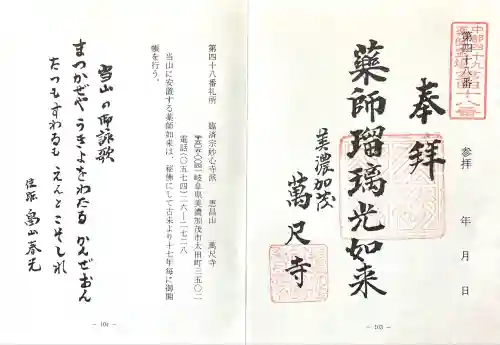 中部四十九
薬師霊場
第四十八番
第四十八番
奉拝
参拝 年 月 日
薬師瑠璃光如来
美濃加茂
萬尺寺
- 103 -
第四十八番札所 臨済宗妙心寺派 恵昌山 萬尺寺
岐阜県美濃加茂市太田町三五〇二
電話(〇五七四)二六—二七二八
当山に安置する薬師如来は、秘佛にして古来より十七年毎に御開
帳を行う。
当山の御詠歌
まつかぜや うきよをわたる かんぜおん
たつもすわるも えんとこそしれ
住職 畠山春光
- 104 -